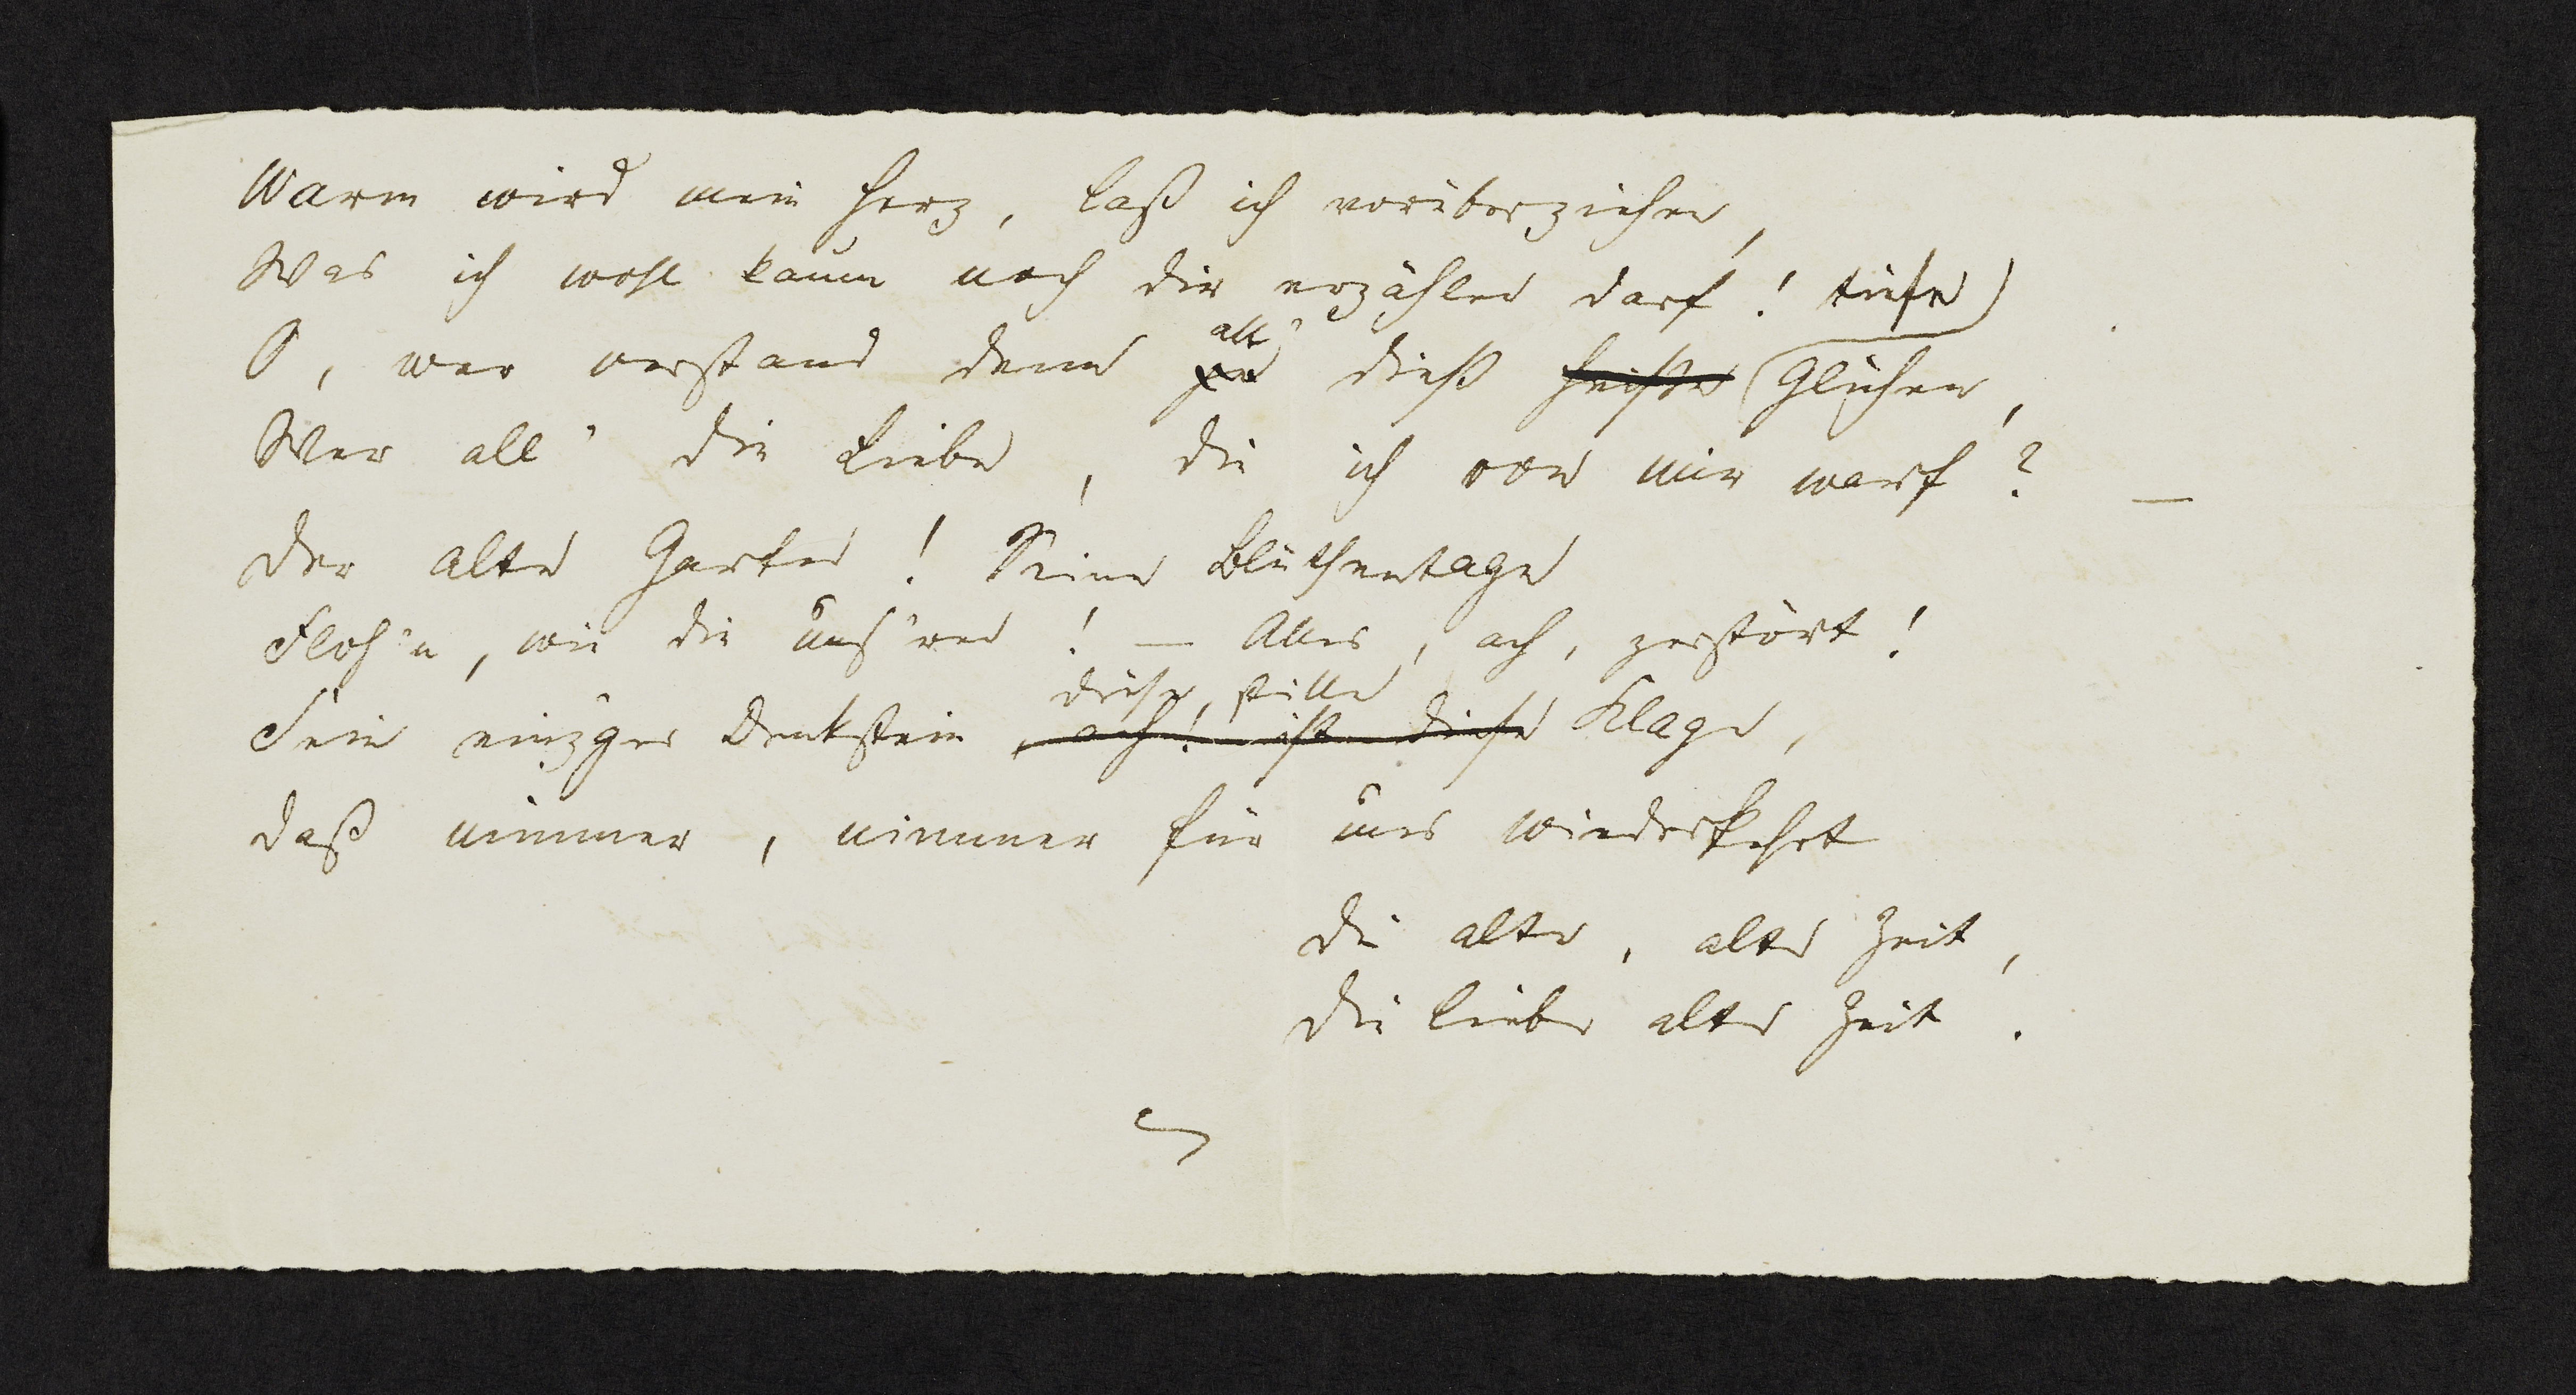 Warm wird mein Herz, laß ich vorüberziehen,
Was ich wohl kaum noch dir erzählen darf! tiefe
all'
O, wer verstand denn je dieß heiße Glühen,
Wer all' die Liebe, die ich von mir warf? —
Der alte Garten! Seine Blüthentage
Floh'n, wie die uns'ren! — Alles, ach, zerstört!
diese, stille
Sein einz'ger Denkstein, ach! ist diese Klage,
Daß nimmer, nimmer für uns wiederkehrt
Die alte, alte Zeit,
Die liebe alte Zeit.